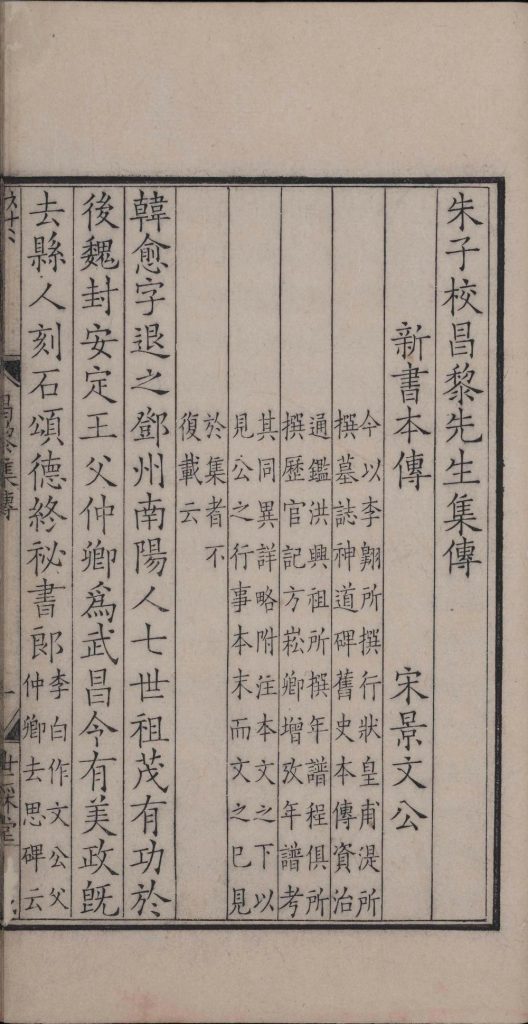 朱子校昌黎先生集傳
新書本傳 宋景文公
今以李翺所撰行狀皇甫湜所
撰墓誌神道碑舊史本傳資治
通鑑洪興祖所撰年譜程俱所
撰歷官記方崧卿增攷年譜考
其同異詳略附注本文之下以
見公之行事本末而文之已見
於集者不
復載云
韓愈字退之鄧州南陽人七世祖茂有功於
後魏封安定王父仲卿爲武昌令有美政旣
去縣人刻石頌德終祕書郎
李白作文公父
仲卿去思碑云
昌黎集傳
一
世綵堂